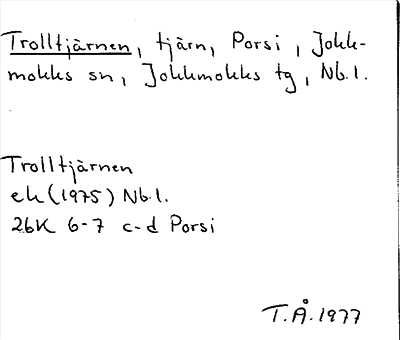 Trolltjärnen, tjärn, Porsi, Jokk-
mokks sn, Jokkmokks tg, Nb.l.
Trolltjärnen
ek (1975) Nb.l.
26K 6-7 c-d Porsi
T.Å. 1977